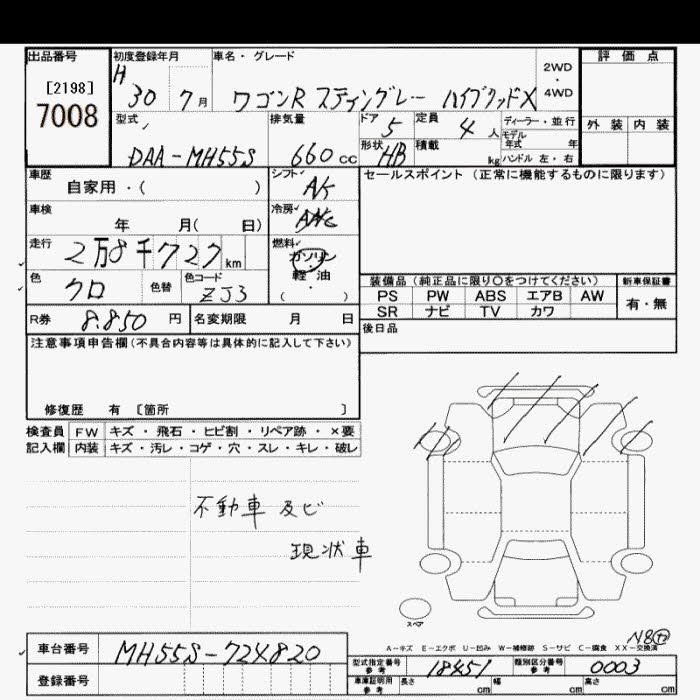 出品番号
[2198]
7008
初度登録年月
H
30 7月
車名・グレード
ワゴンR スティングレー ハイブリッドX
2WD
・
4WD
評価点
外装 内装
型式
DAA-MH55S
排気量
660cc
ドア
5
定員
4人
ディーラー・並行
モデル
年式 年
形状
HB
積載
kg
ハンドル 左・右
車歴
自家用・( )
シフト
セールスポイント(正常に機能するものに限ります)
車検
年 月( 日)
冷房
走行
2万8千727km
燃料
ガソリン
・
軽油
・
( )
色
クロ
色替
色コード
ZJ3
装備品(純正品に限り〇をつけてください)
新車保証書
PS PW ABS エアB AW
有・無
SR ナビ TV カワ
R券
8.850円
名変期限 月 日
後日品
注意事項申告欄(不具合内容等は具体的に記入して下さい)
修復歴 有 〔箇所 〕
検査員
記入欄
FW キズ・飛石・ヒビ割・リペア跡・×要
内装 キズ・汚レ・コゲ・穴・スレ・キレ・破レ
不動車 及ビ
現状車
スペア
A－キズ E－エクボ U－凹み W－補修跡 S－サビ C－腐食 XX－交換済
車台番号
MH55S-724820
登録番号
型式指定番号
参考
18451
類別区分番号
参考
0003
車庫証明用
参考
長さ cm 幅 cm 高さ cm